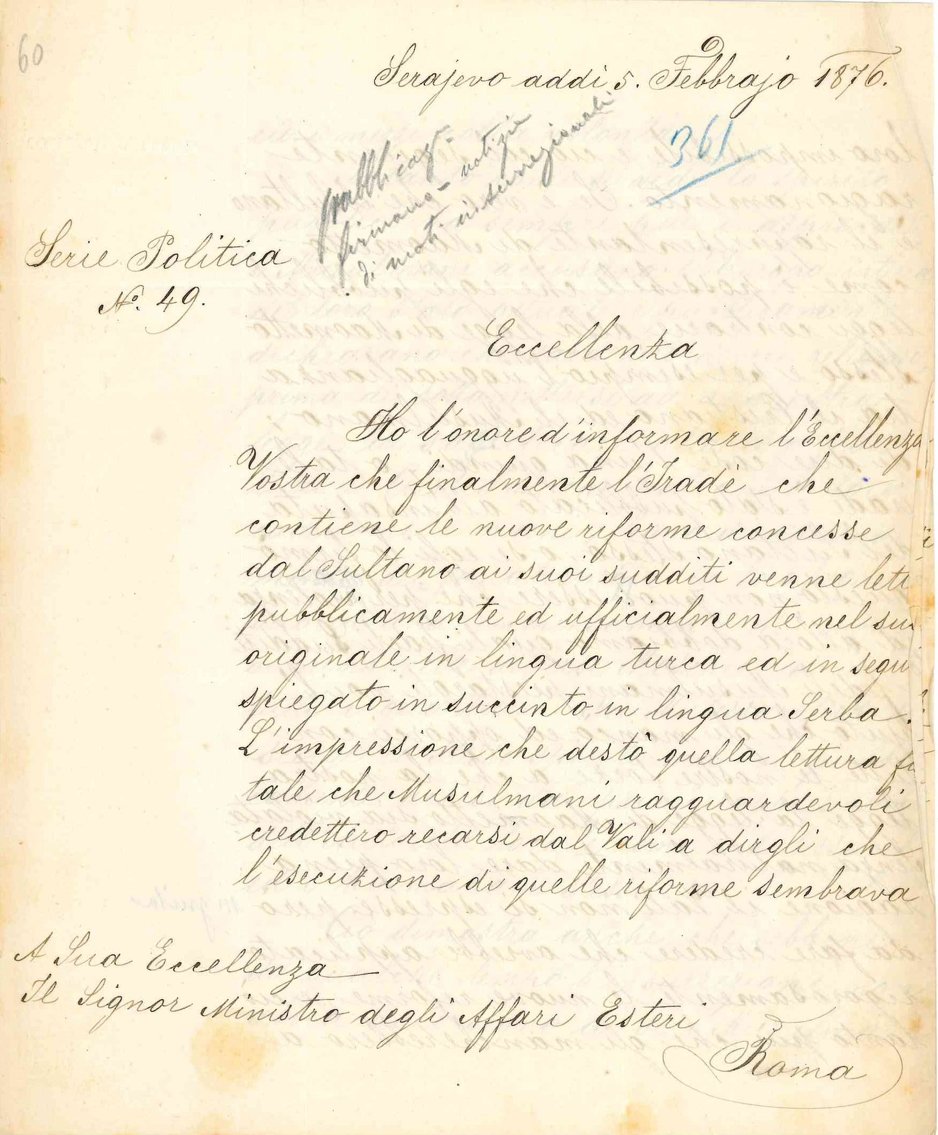 60
Serajevo addì 5. Febbrajo 1876.
361
pubblicaz.
firmano - notizie
di moti insurrezionali
Serie Politica
No. 49.
Eccellenza
Ho l'onore d'informare l'Eccellenza
Vostra che finalmente l'Iradè che
contiene le nuove riforme concesse
dal Sultano ai suoi sudditi venne lett
pubblicamente ed ufficialmente nel suo
originale in lingua turca ed in segu
spiegato in succinto in lingua Serba.
L'impressione che destò quella lettura fu
tale che Musulmani ragguardevoli
credettero recarsi dal Vali a dirgli che
l'esecuzione di quelle riforme sembrava
A Sua Eccellenza
Il Signor Ministro degli Affari Esteri
Roma